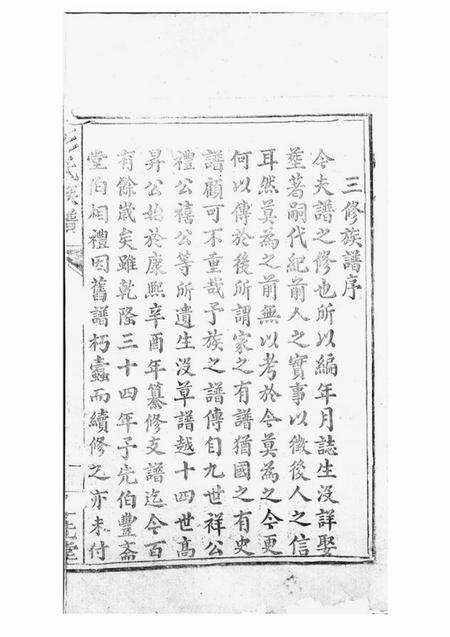 三修族譜序
今夫譜之修也所以編年月誌生沒詳娶
塟著嗣代紀前人之實事以徵後人之信
耳然莫為之前無以考於今莫為之今更
何以傳於後所謂家之有譜猶國之有史
譜顧可不重哉予族之譜傳自九世祥公
禮公禧公等所遺生沒草譜越十四世高
昇公始於康熙辛酉年纂修支譜迄今百
有餘歲矣雖乾隆三十四年予先伯豐齋
堂伯相禮因舊譜朽蠹而續修之亦未付
氏族譜